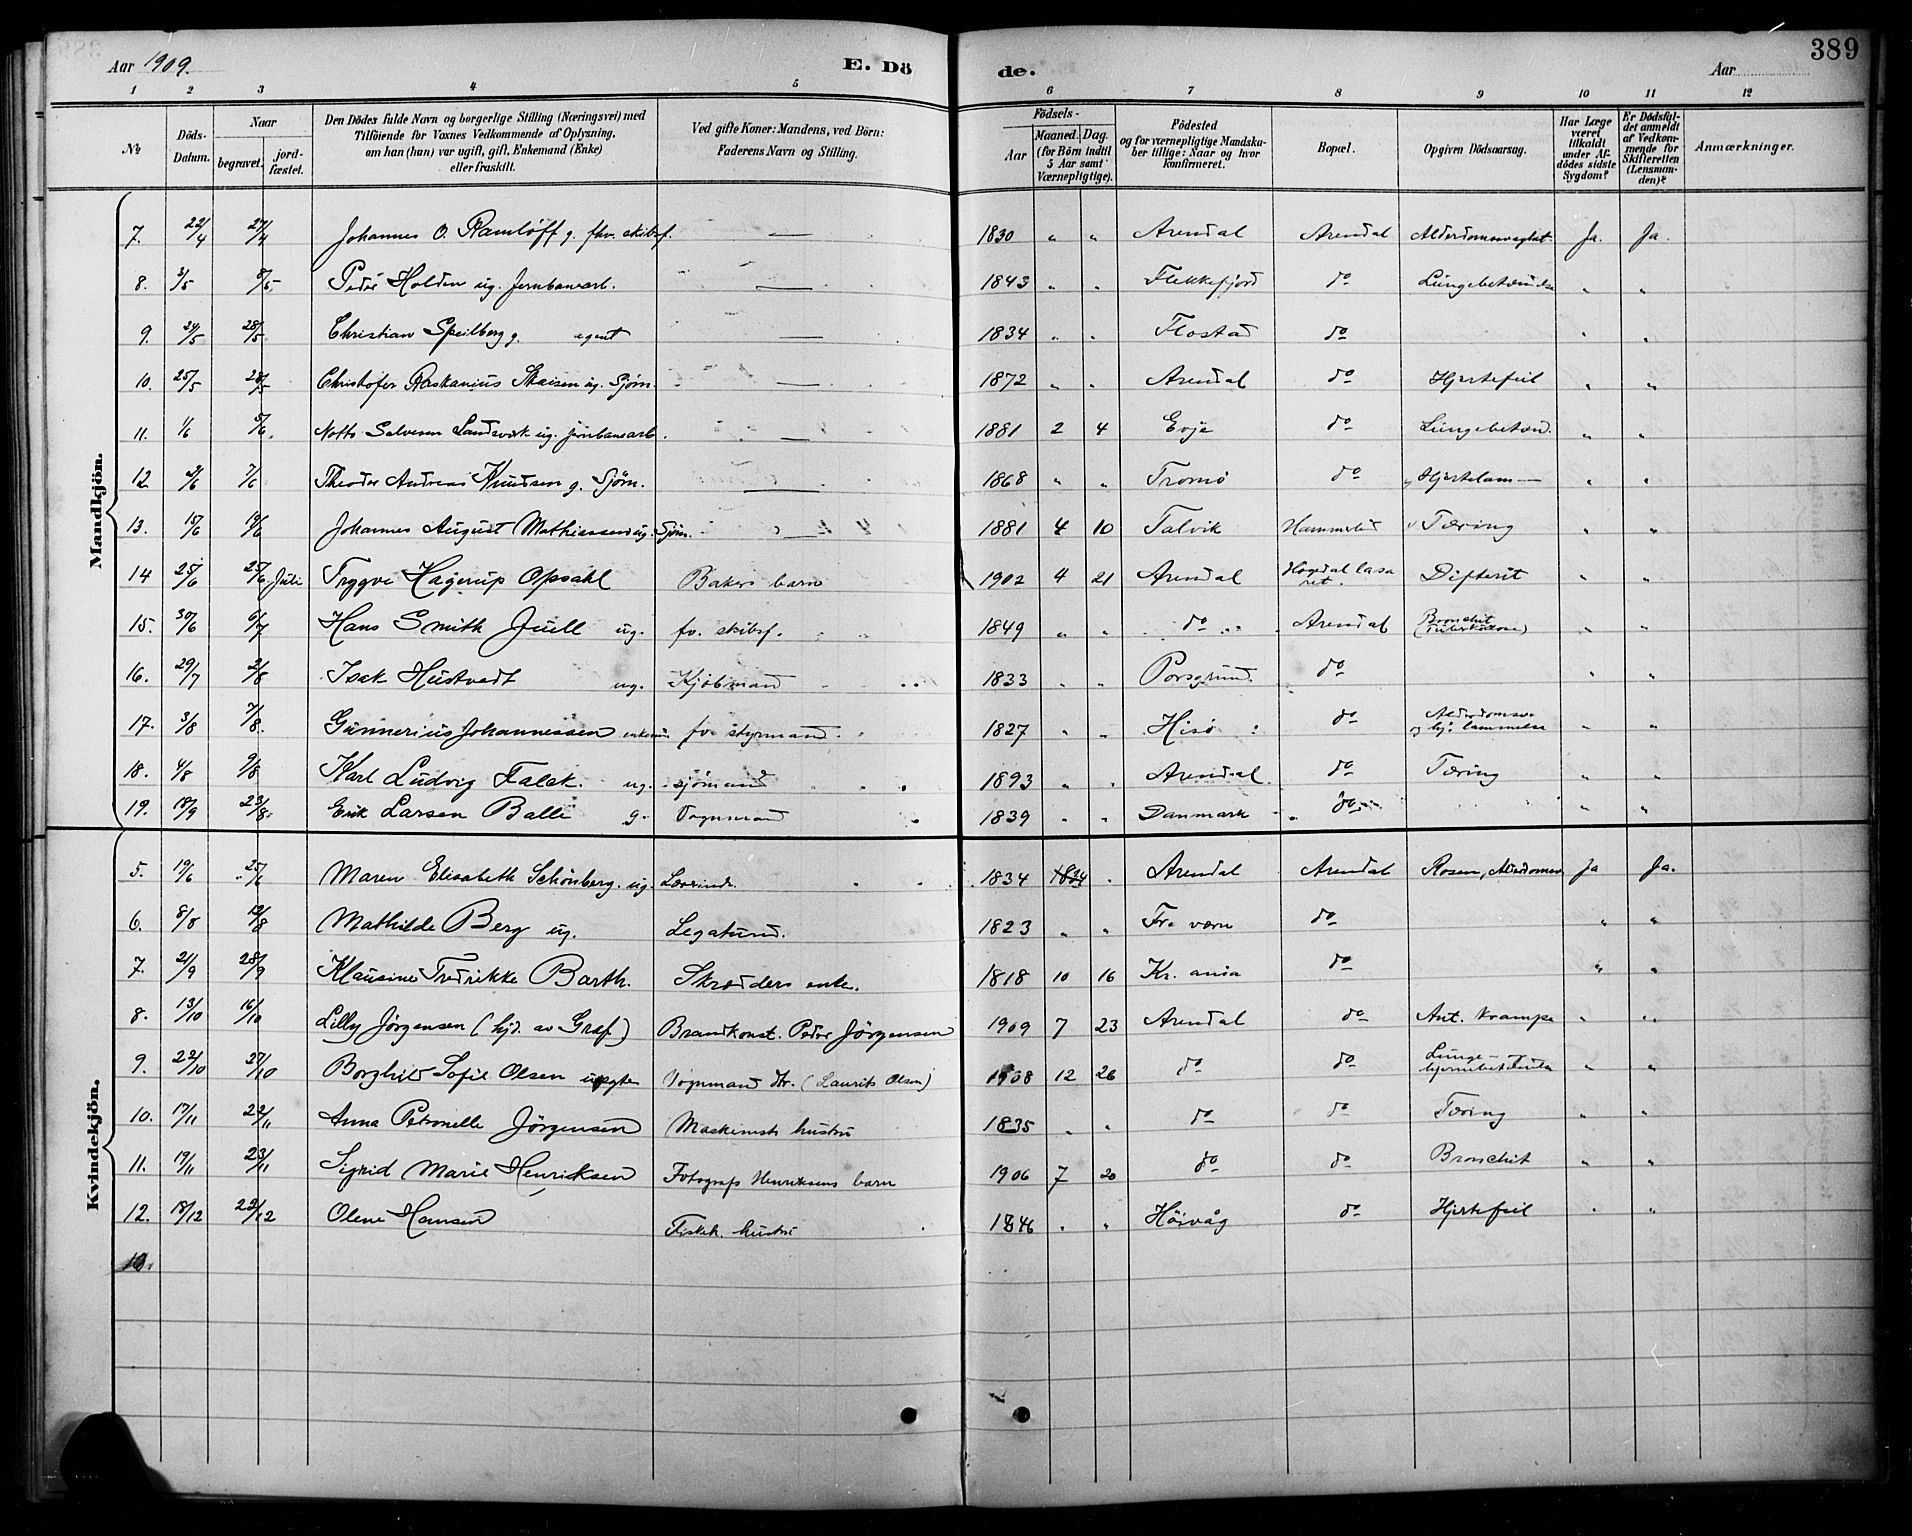 389
Aar 1909. E. Dö de. Aar
1 2 3 4 5 6 7 8 9 10 11 12
№ Döds-Datum. Naar begravet. jord-fæstet. Den Dödes fulde Navn og borgerlige Stilling (Næringsvei) med Tilföiende for Voxnes Vedkommende af Oplysning, om han (hun) var ugift, gift, Enkemand (Enke) eller fraskilt. Ved gifte Koner: Mandens, ved Börn: Faderens Navn og Stilling. Födsels- Aar Maaned. Dag. (for Börn indtil 5 Aar samt Værnepligtige). Födested og for værnepligtige Mandskaber tillige: Naar og hvor konfirmeret. Bopæl. Opgiven Dödsaarsag. Har Læge været tilkaldt under Afdödes sidste Sygdom? Er Dödsfaldet anmeldt af Vedkommende for Skifteretten (Lensmanden)? Anmærkninger.
Mandkjön.
7. 22/4 27/4 Johannes O. Ramløff g. fhv. skibsf. — 1830 " " Arendal Arendal Alderdomssvaghet Ja. Ja.
8. 3/5 8/5 Peder Holden ug. Jernbanearb. 1843 " " Flekkefjord do Lungebetændelse " "
9. 24/5 28/5 Christian Speilberg g. agent — 1834 " " Flostad do " "
10. 25/5 28/5 Christofer ug. Sjøm. — 1872 " " Arendal do Hjertefeil " "
11. 1/6 5/6 Salvesen Landsverk ug. Jernbanearb. — 1881 2 4 Evje do Lungebetænd. " "
12 2/6 7/6 Theodor Andreas Knudsen g. Sjøm. — 1868 " " Tromø do Hjertelam— " "
13. 15/6 19/6 Johannes August Mathiassen ug. Sjøm. 1881 4 10 Talvik Tæring " "
14 25/6 25/6 Juli Tryggve Hagerup Opsahl Bakers barn 1902 4 21 Arendal lasaret. Difterit " "
15. 30/6 6/7 Hans Smith Juell ug. fv. skibsf. 1849 " " do Arendal Bronchit (Tuberkulose) " "
16. 29/7 2/8 Isak Hustvedt ug. Kjøbmand 1833 " " Porsgrund do " "
17. 3/8 7/8. Gunnerius Johannessen enkem. fv. styrmand 1827 " " Hisø do Alderdomssv. og hj. lammelse " "
18. 4/8 9/8 Karl Ludvig Falck ug. sjømand 1893 " " Arendal. do Tæring " "
19. 18/9 23/8. Erik Larsen Balle g. Vognmand 1839 " " Danmark do " "
Kvindekjön.
5. 19/6 25/6 Maren Elisabeth Schönberg ug. Lærind. 1834 1834 " Arendal Arendal Rosen, Alderdomsv. Ja Ja.
6. 8/8 12/8 Mathilde Berg ug. Legatund. 1823 " " Fr. værn do " "
7. 21/9 28/9 Klausine Fredrikke Barth. Skrædders enke. 1818 10 16 Kr. ania do " "
8. 13/10 16/10 Lilly Jörgensen (hjd. av Graf) Brandkonst. Peder Jörgensen 1909 7 23 Arendal do Ant. krampe " "
9. 22/10 27/10 Borghild Sofie Olsen Vognmand dtr. (Laurits Olsen) 1908 12 26 do do Lunge- " "
10. 17/11 22/11 Anna Petronelle Jörgensen Maskinists hustru 1835 " " do do Tæring " "
11. 19/11 23/11 Sigrid Marie Henriksen Fotograf Henriksens barn 1906 7 20 do do Bronchit " "
12. 18/12 22/12 Olene Hansen Fiskh. hustru 1846 " " Höivåg do Hjertefeil " "